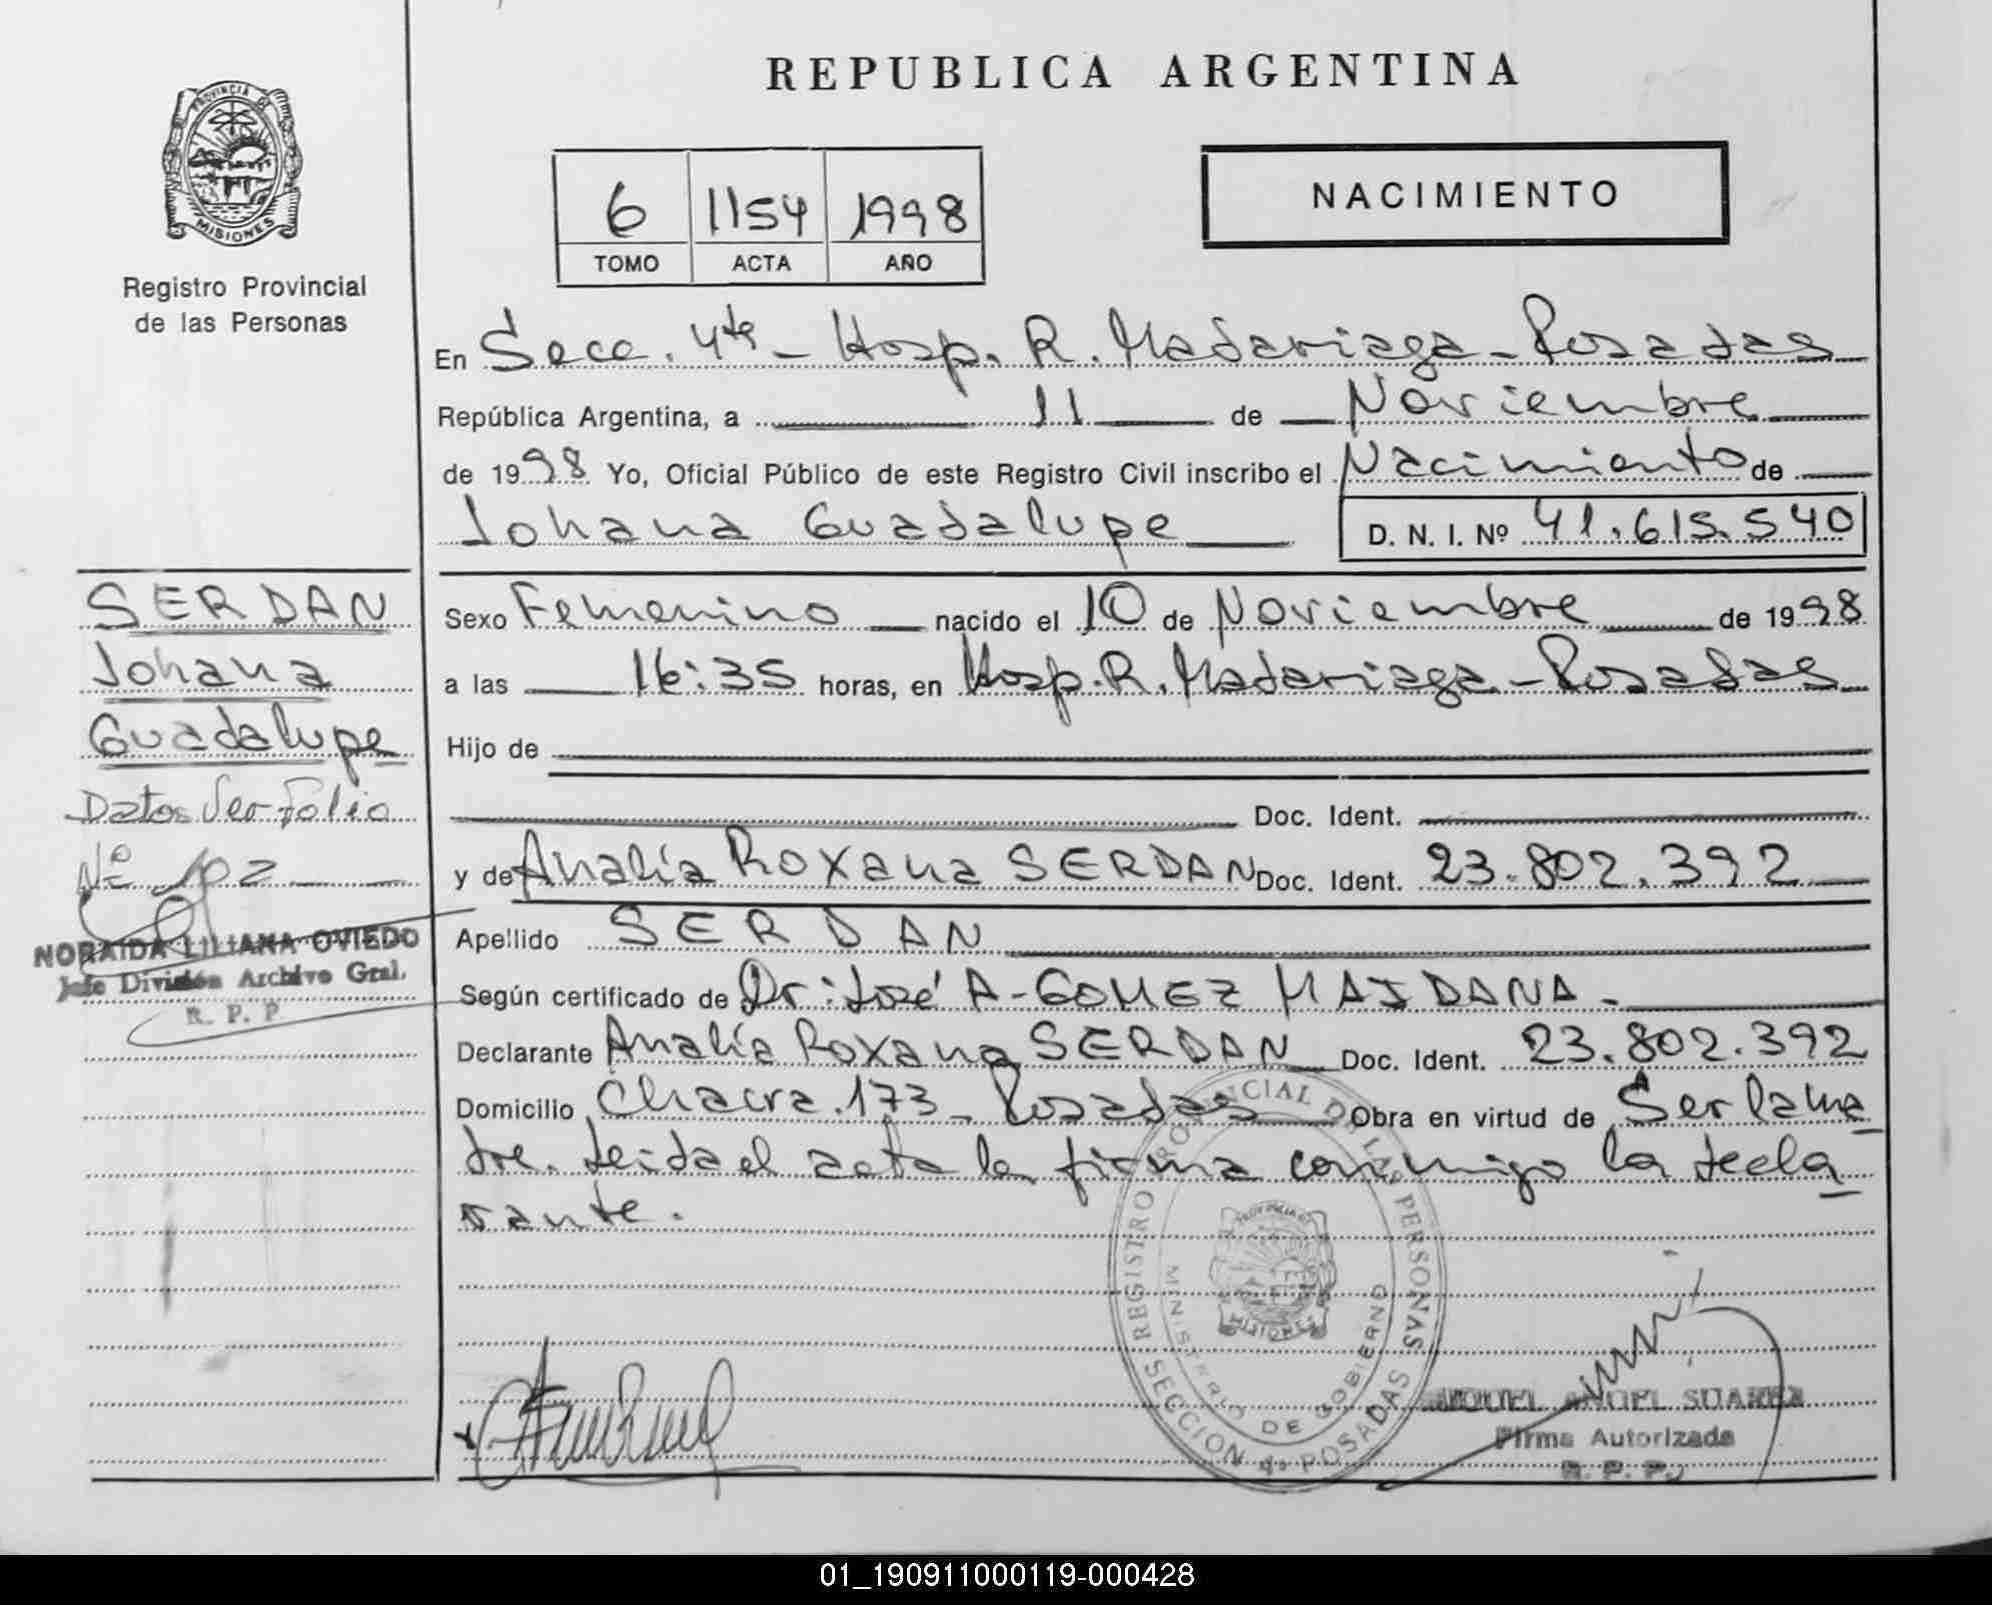 REPUBLICA ARGENTINA
PROVINCIA DE
MISIONES
Registro Provincial
de las Personas
6 1154 1998
TOMO ACTA AÑO
NACIMIENTO
En Secc. 4ta - Hosp. R. Madariaga - Posadas
República Argentina, a 11 de Noviembre
de 1998 Yo, Oficial Público de este Registro Civil inscribo el Nacimiento de
Johana Guadalupe D. N. I. Nº 41.615.540
Sexo Femenino nacido el 10 de Noviembre de 1998
a las 16:35 horas, en Hosp. R. Madariaga - Posadas
Hijo de
Doc. Ident.
y de Analía Roxana SERDAN Doc. Ident. 23.802.392
Apellido SERDAN
Según certificado de Dr: José A- GOMEZ MAIDANA -
Declarante Analía Roxana SERDAN Doc. Ident. 23.802.392
Domicilio Chacra 173 - Posadas Obra en virtud de Ser la ma
dre. Leida el acta la firma conmigo la decla
rante.
SERDAN
Johana
Guadalupe
Datos Ver Folio
Nº 102
NORAIDA LILIANA OVIEDO
Jefe División Archivo Gral.
R. P. P.
REGISTRO PROVINCIAL DE LAS PERSONAS
MINISTERIO DE GOBIERNO
MISIONES
SECCION 4a POSADAS
MIGUEL ANGEL SUAREZ
Firma Autorizada
R. P. P.
01_190911000119-000428